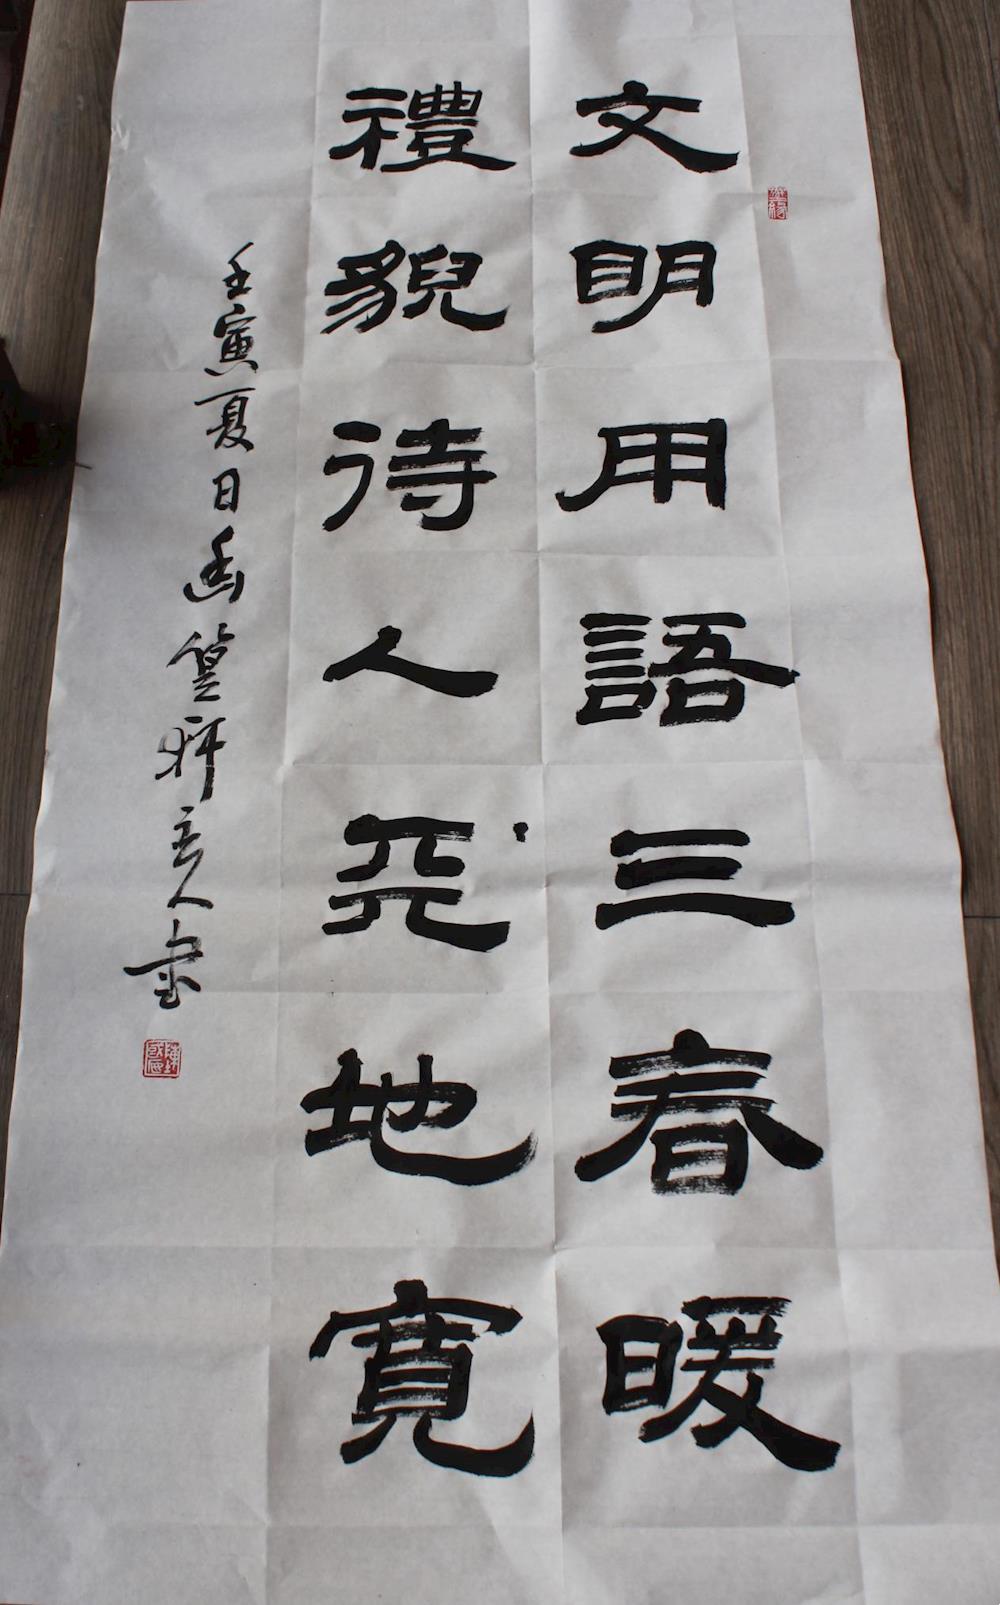 文明用語三春暖
禮貌待人天地寬
壬寅夏日幽篁軒主人書